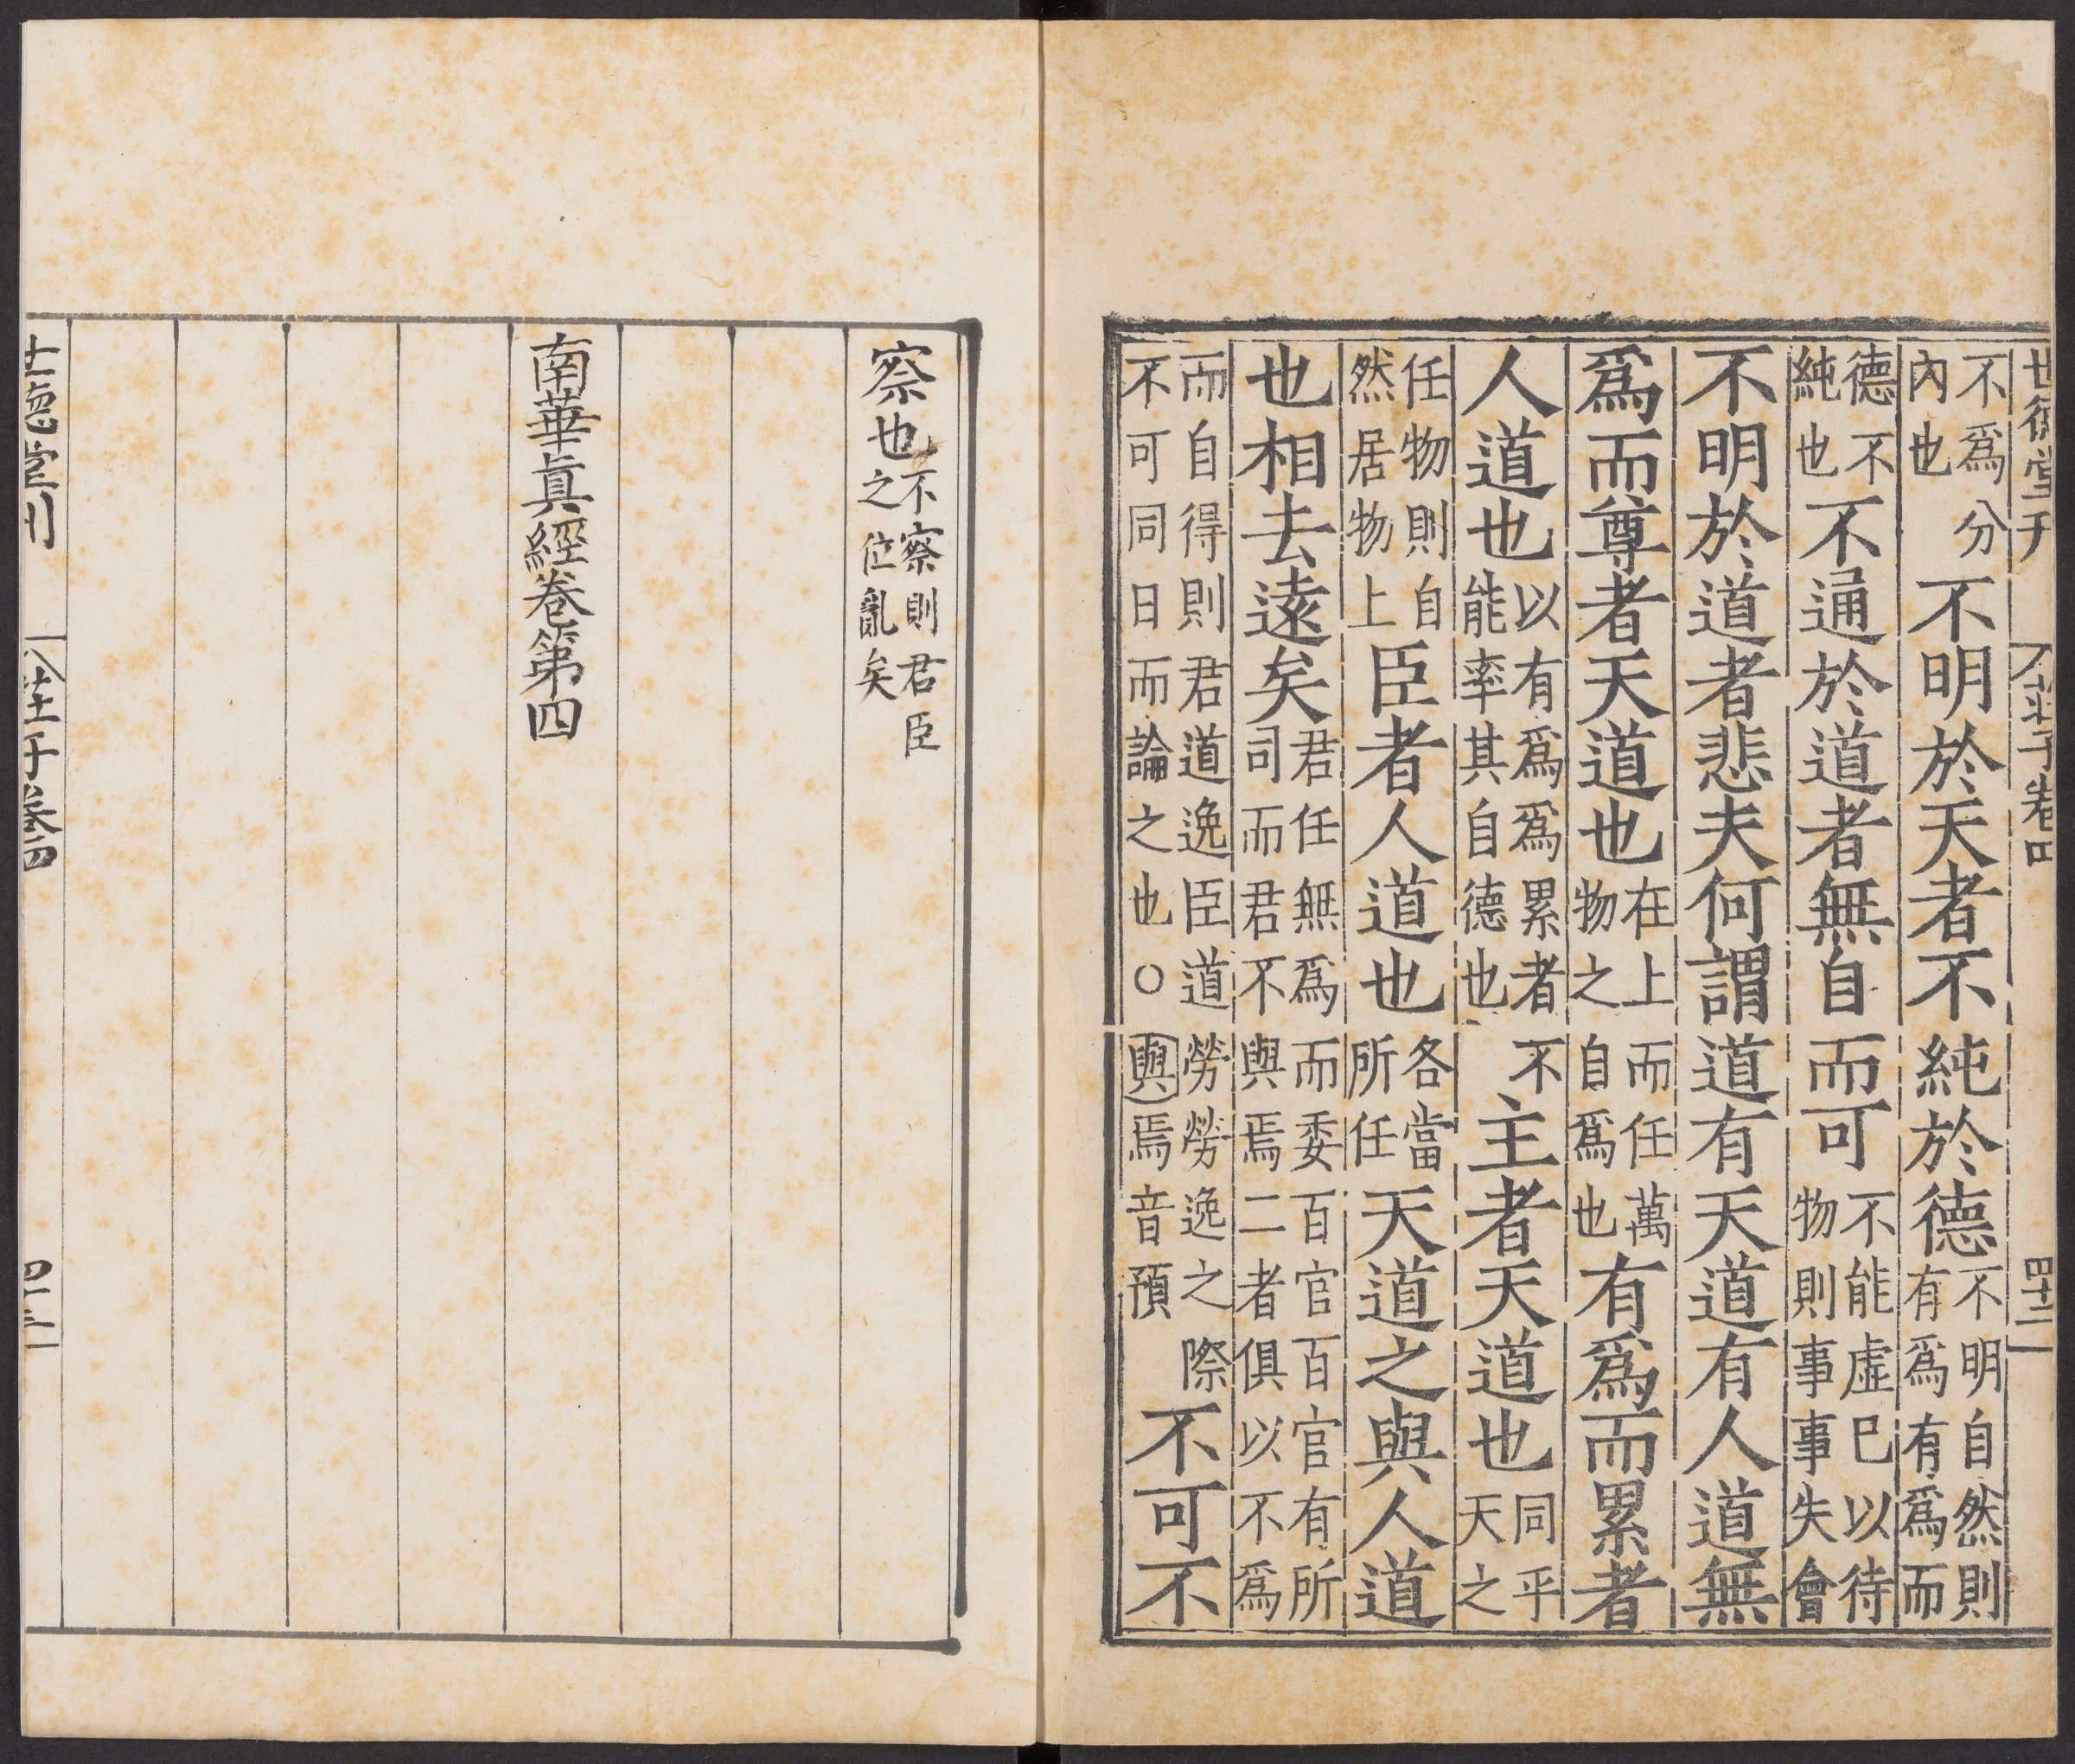 世德堂刊 莊子卷四 四十二
不爲分內也不明於天者不純於德不明自然則有爲有爲而
德不純也不通於道者無自而可不能虛巳以待物則事事失會
不明於道者悲夫何謂道有天道有人道無
爲而尊者天道也在上而任萬物之自爲也有爲而累者
人道也以有爲爲累者不能率其自德也主者天道也同乎天之
任物則自然居物上臣者人道也各當所任天道之與人道
也相去遠矣君任無爲而委百官百官有所司而君不與焉二者俱以不爲
而自得則君道逸臣道勞勞逸之際不可同日而論之也○與焉音預不可不
察也不察則君臣之位亂矣
南華眞經卷第四
世德堂刊 莊子卷四 四十三